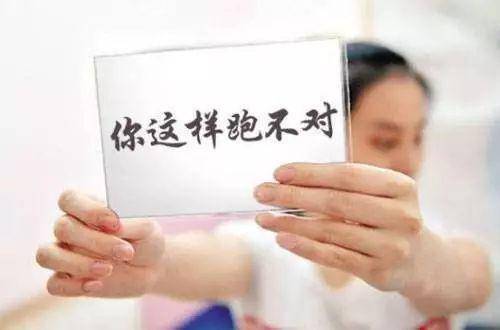 你这样跑不对